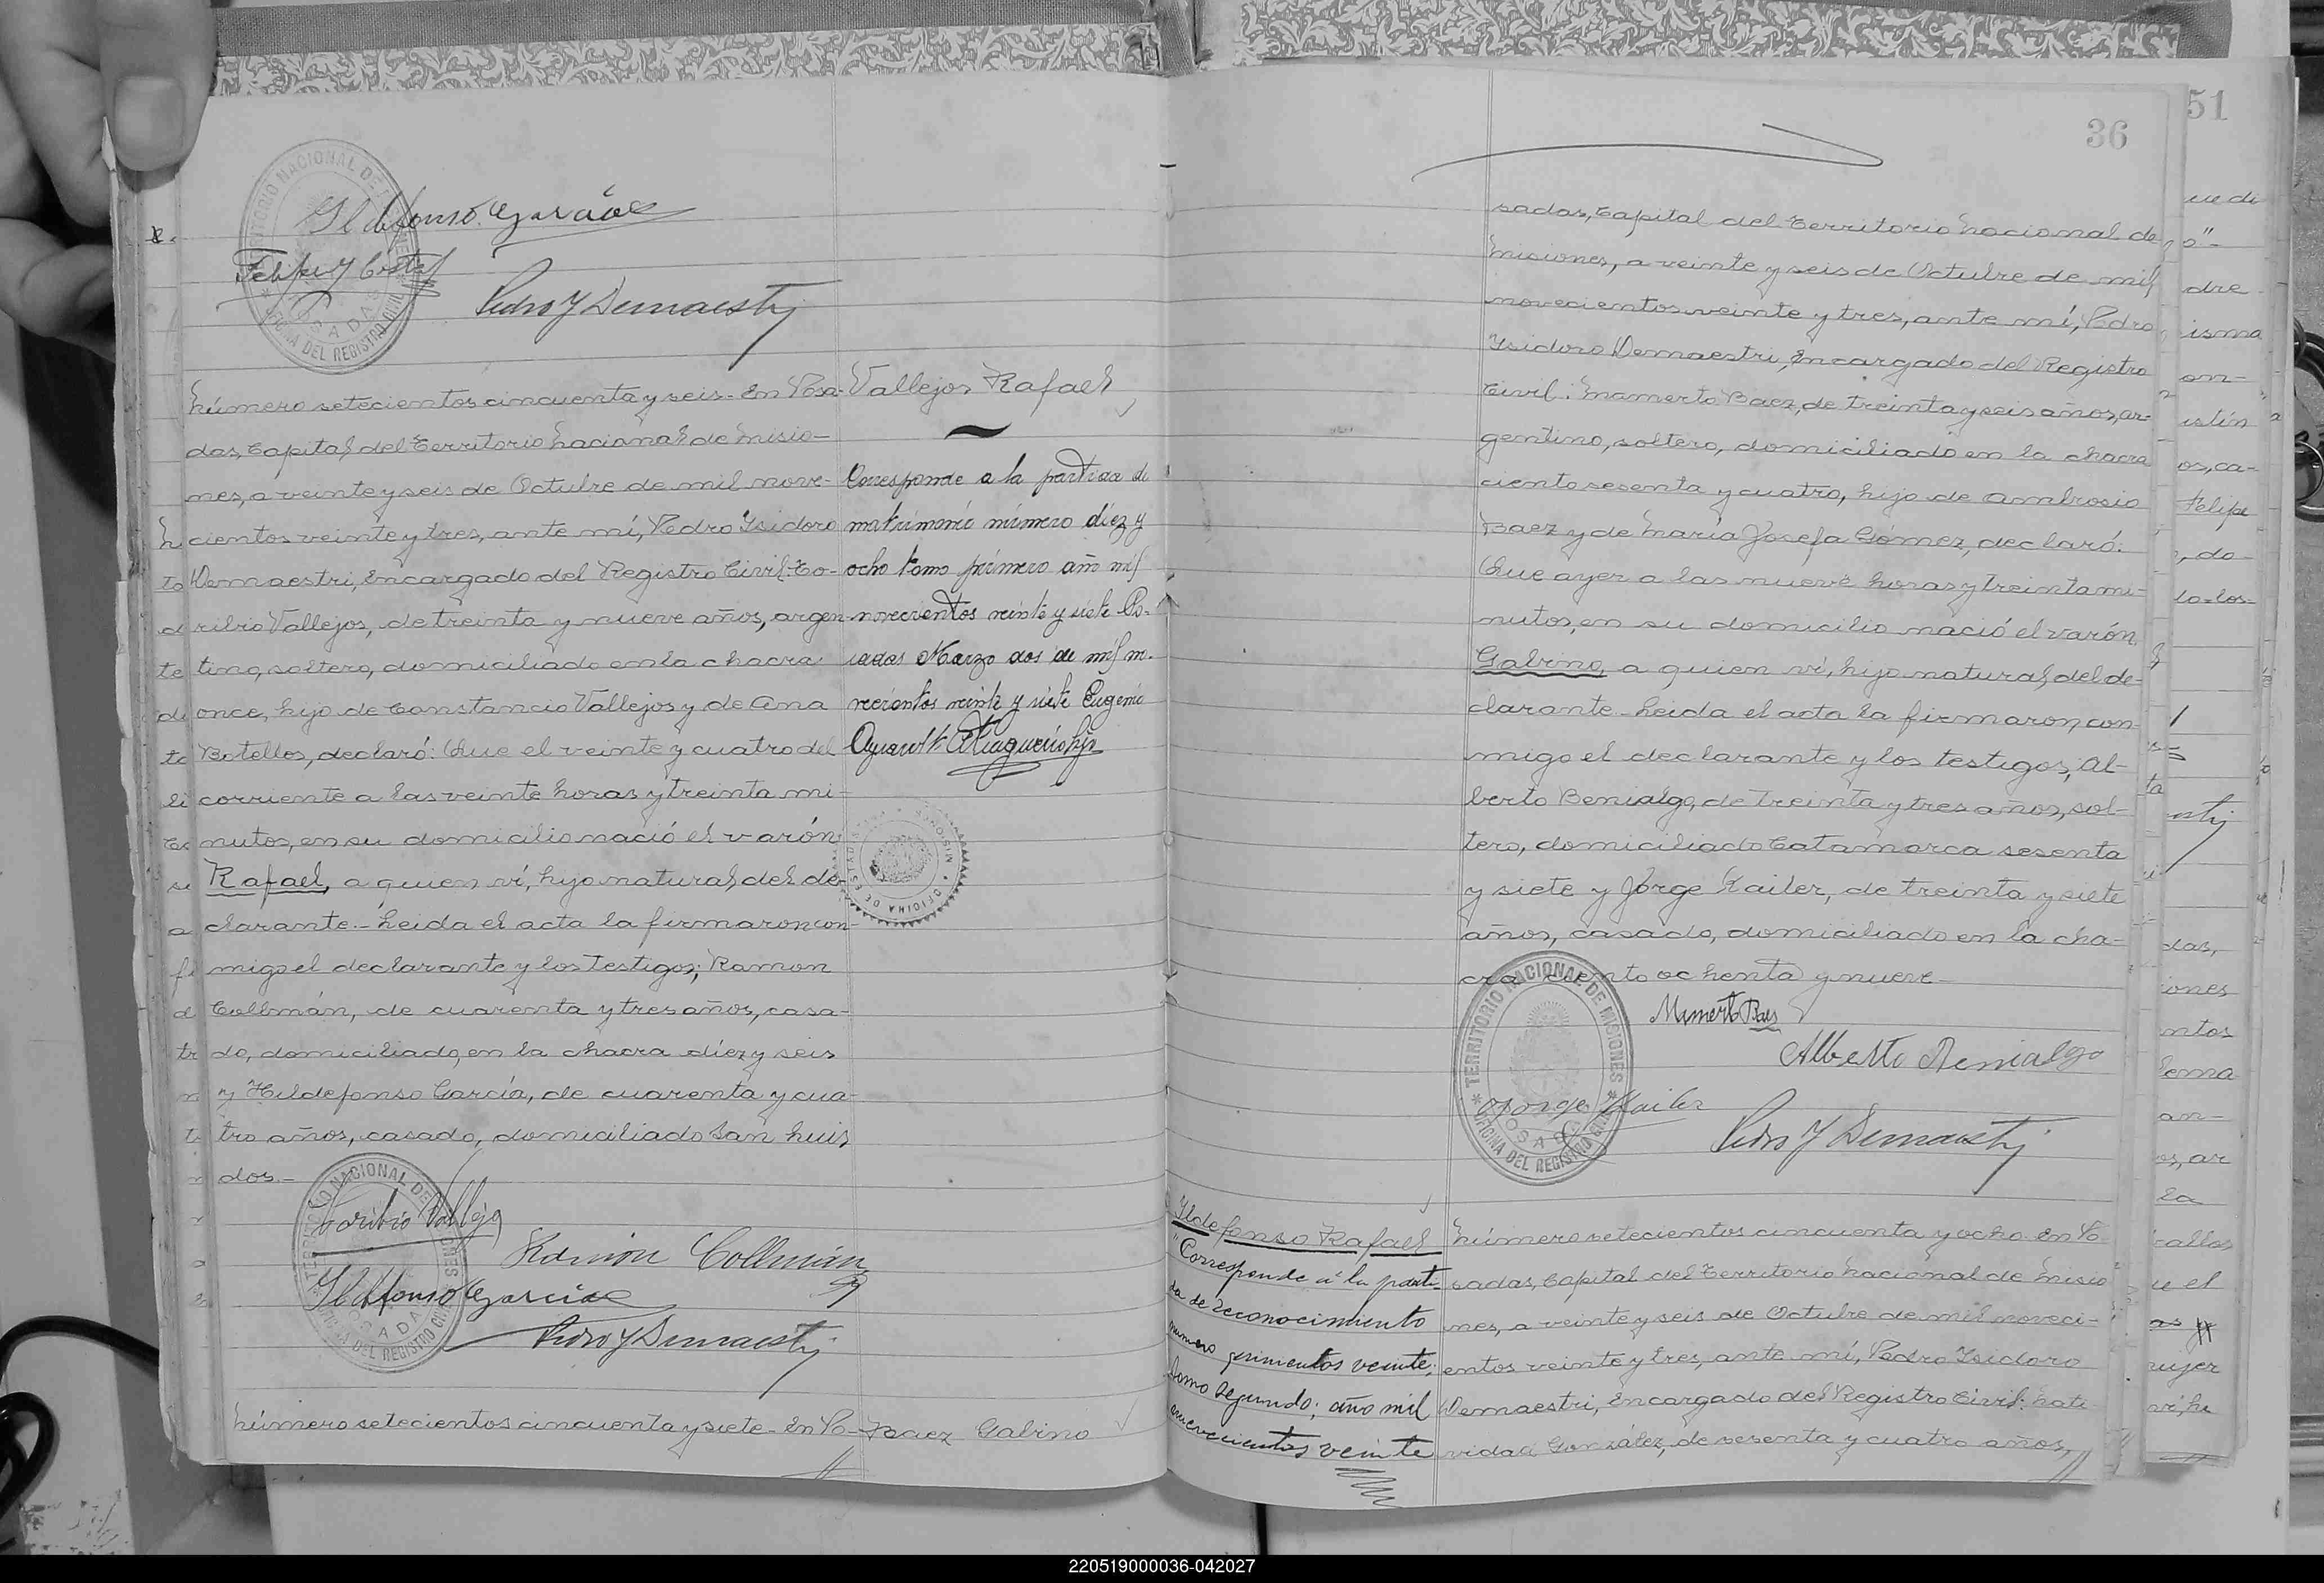 Ildefonso Garcia
Felipe Y Costa
Pedro Y Demaestri
TERRITORIO NACIONAL DE
OFICINA DEL REGISTRO CIVIL
POSADAS
Número setecientos cincuenta y seis - En Posa-
das, Capital del Territorio Nacional de Misio-
nes, a veinte y seis de Octubre de mil nove-
cientos veinte y tres, ante mí, Pedro Isidoro
Demaestri, Encargado del Registro Civil: To-
ribio Vallejos, de treinta y nueve años, argen-
tino, soltero, domiciliado en la chacra
once, hijo de Constancio Vallejos y de Ana
Botellos, declaró: Que el veinte y cuatro del
corriente a las veinte horas y treinta mi-
nutos, en su domicilio nació el varón
Rafael, a quien ví, hijo natural del de-
clarante.- Leida el acta la firmaron con-
migo el declarante y los testigos; Ramon
Collmán, de cuarenta y tres años, casa-
do, domiciliado, en la chacra diez y seis
y Hildefonso García, de cuarenta y cua-
tro años, casado, domiciliado San Luis
dos.-
Toribio Vallejo
Ramón Collmán
Ildefonso Garcia
Pedro Y Demaestri
TERRITORIO NACIONAL DE MISIONES
OFICINA DEL REGISTRO CIVIL
POSADAS
Número setecientos cincuenta y siete - En Po-
Vallejos Rafael
Corresponde a la partida de
matrimonio número diez y
ocho tomo primero año mil
novecientos veinte y siete Po-
sadas Marzo dos de mil no-
vecientos veinte y siete Eugenio
OFICINA DE
MISIONES
Baez Gabino
36
sadas, Capital del Territorio Nacional de
Misiones, a veinte y seis de Octubre de mil
novecientos veinte y tres, ante mí, Pedro
Isidoro Demaestri, Encargado del Registro
Civil: Mamerto Baez, de treinta y seis años, ar-
gentino, soltero, domiciliado en la chacra
ciento sesenta y cuatro, hijo de Ambrosio
Baez y de María Josefa Gómez, declaró:
Que ayer a las nueve horas y treinta mi-
nutos, en su domicilio nació el varón
Gabino, a quien ví, hijo natural del de-
clarante - Leida el acta la firmaron con-
migo el declarante y los testigos; Al-
berto Benialgo, de treinta y tres años, sol-
tero, domiciliado Catamarca sesenta
y siete y Jorge Kailer, de treinta y siete
años, casado, domiciliado en la cha-
cra ciento ochenta y nueve -
Mamerto Baes
Alberto Benialgo
Jorge Kailer
Pedro Y Demaestri
TERRITORIO NACIONAL DE MISIONES
OFICINA DEL REGISTRO CIVIL
POSADAS
Ildefonso Rafael
"Corresponde a la parti-
da de reconocimiento
número quinientos veinte;
tomo segundo; año mil
novecientos veinte
Número setecientos cincuenta y ocho. En Po-
sadas, Capital del Territorio Nacional de Misio
nes, a veinte y seis de Octubre de mil noveci-
entos veinte y tres, ante mí, Pedro Isidoro
Demaestri, Encargado del Registro Civil: Nati-
vidad González, de sesenta y cuatro años,
51
dre
isma
on-
Felipe
das,
iones
ntos
an-
la
u el
mujer
220519000036-042027